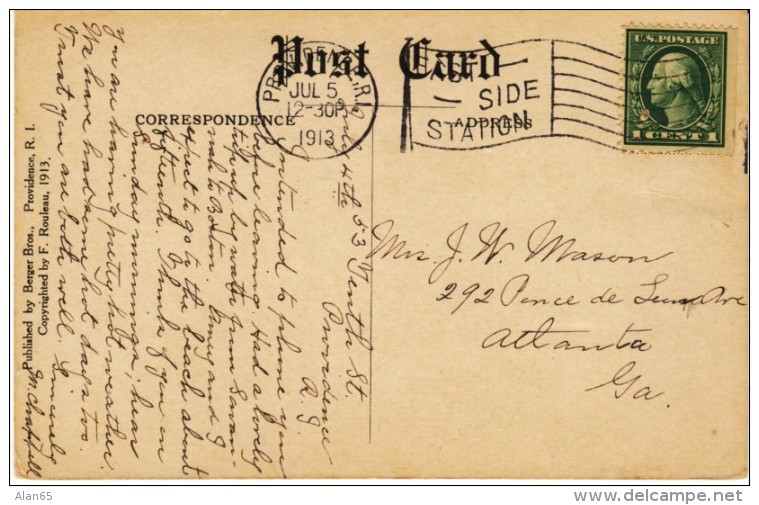 Post Card
CORRESPONDENCE
ADDRESS
PROVIDENCE, R.I.
JUL 5
12-30P
1913
EAST
SIDE
STATION
U.S. POSTAGE
1 CENT 1
Mrs. J. W. Mason
292 Ponce de Leon Ave
Atlanta
Ga.
July 4th 53 Tenth St.
Providence
R. I.
Intended to phone you
before leaving. Had a lovely
trip up by water from Savan-
nah to Boston. and I
expect to go to the beach about
fifteenth. Think of you on
Sunday mornings, hear
you are having pretty hot weather.
We have had some hot days too.
Trust you are both well. Sincerely
M. Chappell
Published by Berger Bros., Providence, R. I.
Copyrighted by F. Rouleau, 1913.
Alan65
www.delcampe.net